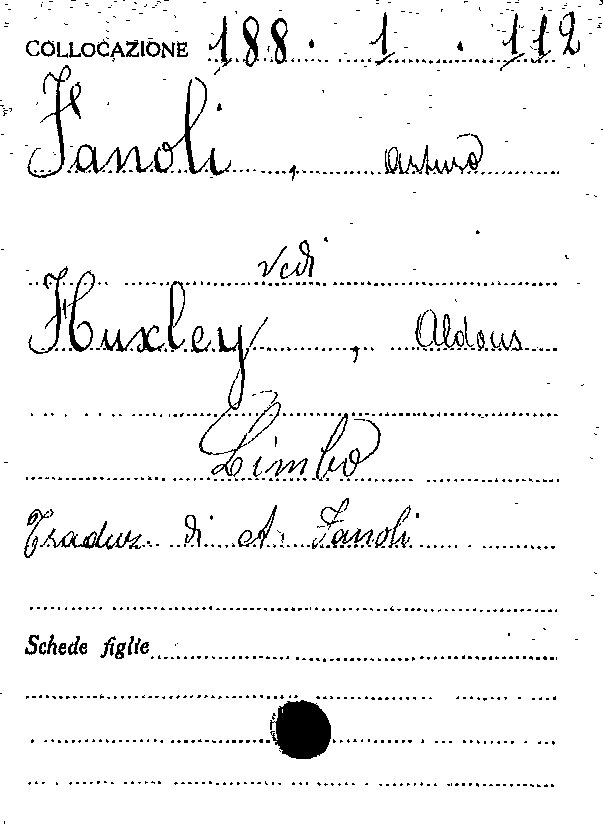 COLLOCAZIONE 188. 1 . 112
Fanoli, Arturo
vedi
Huxley, Aldous
Limbo
Traduz. di A. Fanoli
Schede figlie